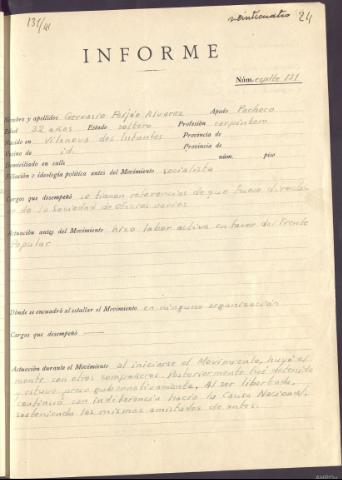 131/41
veinticuatro 24
INFORME
Núm. expte 131
Nombre y apellidos Gervasio Feijóo Alvarez Apodo Pacheco
Edad 32 años Estado soltero Profesión carpintero
Nacido en Vilanova dos Infantes Provincia de
Vecino de id. Provincia de
Domiciliado en calle núm. piso
Filiación e ideología política antes del Movimiento socialista
Cargos que desempeñó se tienen referencias de que fue directi-
vo de la Sociedad de Oficios varios
Actuación antes del Movimiento hizo labor activa en favor del Frente
Popular
Dónde se encuadró al estallar el Movimiento en ninguna organización
Cargos que desempeñó
Actuación durante el Movimiento al iniciarse el Movimiento, huyó el
monte con otros compañeros. Posteriormente fué detenido
y estuvo preso gubernativamente. Al ser libertado,
continuó con indiferencia hacia la Causa Nacional,
sosteniendo las mismas amistades de antes.